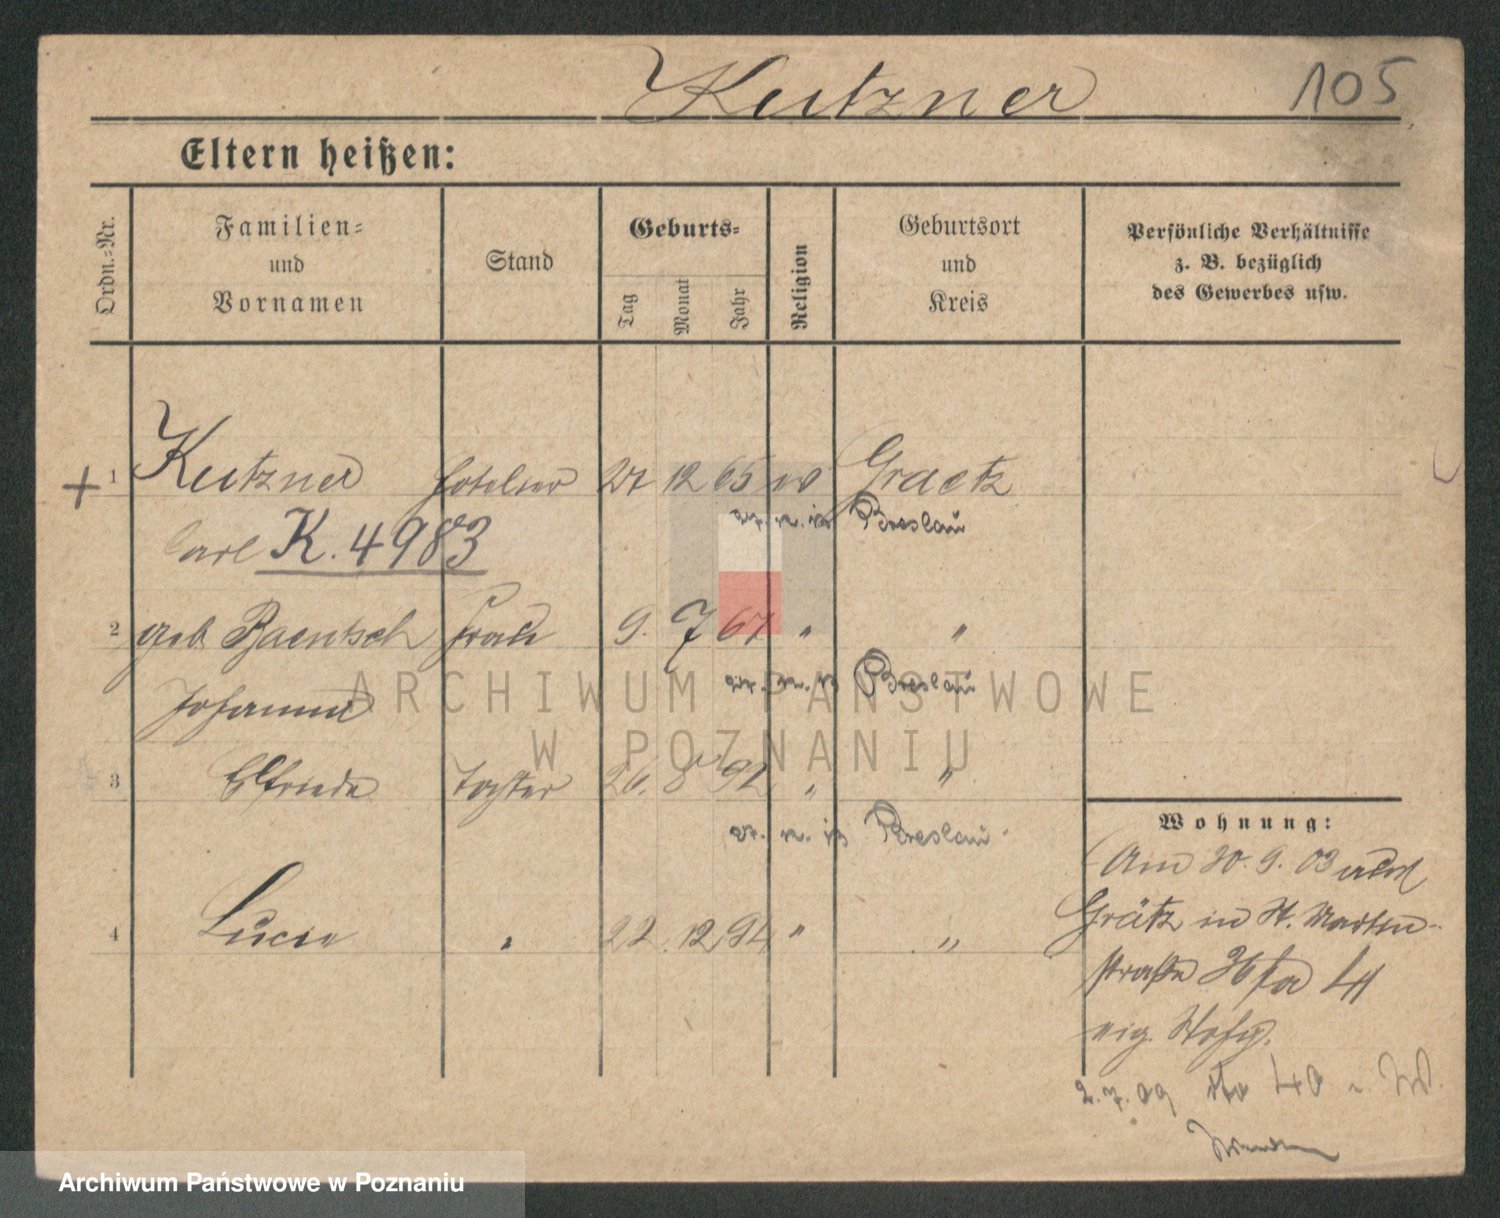 Kutzner 105
Eltern heißen:
Ordn.-Nr.
Familien- und Vornamen
Stand
Geburts-
Tag
Monat
Jahr
Religion
Geburtsort und Kreis
Persönliche Verhältnisse z. B. bezüglich des Gewerbes usw.
+ 1 Kutzner Hotelier 27 12 65 Graetz
Breslau
Carl K. 4983
2 geb Baentsch Frau 9. 7 67 " "
Breslau
Johanna
3 Elfriede Tochter 26. 8 92 " "
Breslau
4 Lucie " 22. 12. 94 " "
Wohnung:
Am 30. 9. 03 aus
Grätz in St. Martin-
straße 36
eig. Wohg.
2. 7. 09 40
ARCHIWUM PAŃSTWOWE
W POZNANIU
Archiwum Państwowe w Poznaniu